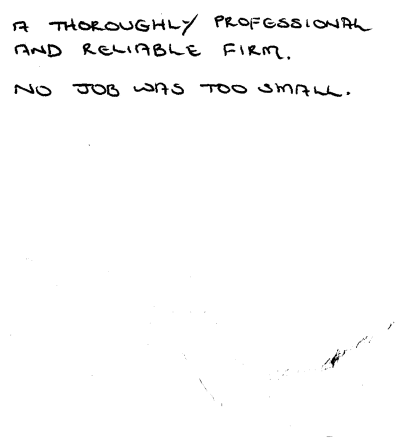 A THOROUGHLY PROFESSIONAL
AND RELIABLE FIRM.
NO JOB WAS TOO SMALL.